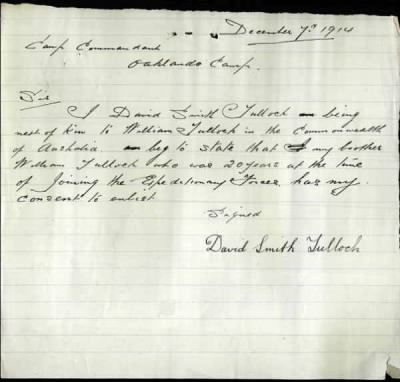 December 7th 1914
Camp Commandant
Oaklands Camp.
Sir
I David Smith Tulloch being
next of kin to William Tulloch in the Commonwealth
of Australia beg to state that my brother
William Tulloch who was 20 years at the time
of Joining the Expeditionary Forces has my
consent to enlist
Signed
David Smith Tulloch